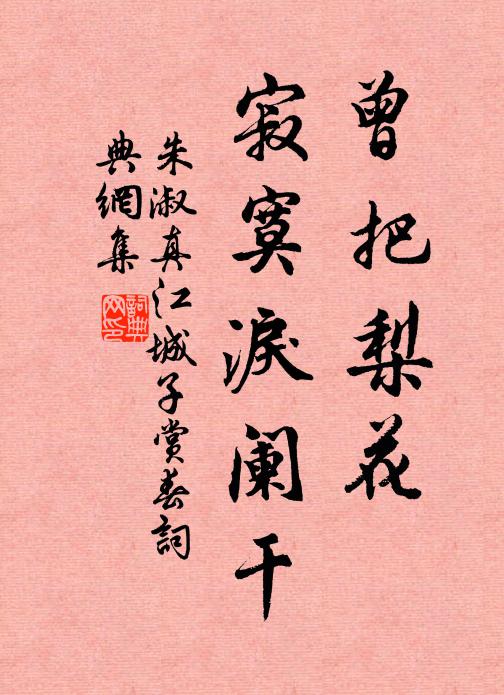 曾把梨花
寂寞淚阑干
朱淑真江城子賞春詞
典網集
詞典网印